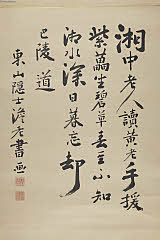 湘中老人讀黃老手援
紫藟坐碧草春至不知
湖水深日暮忘却
巴陵道
東山隱士澹老書画